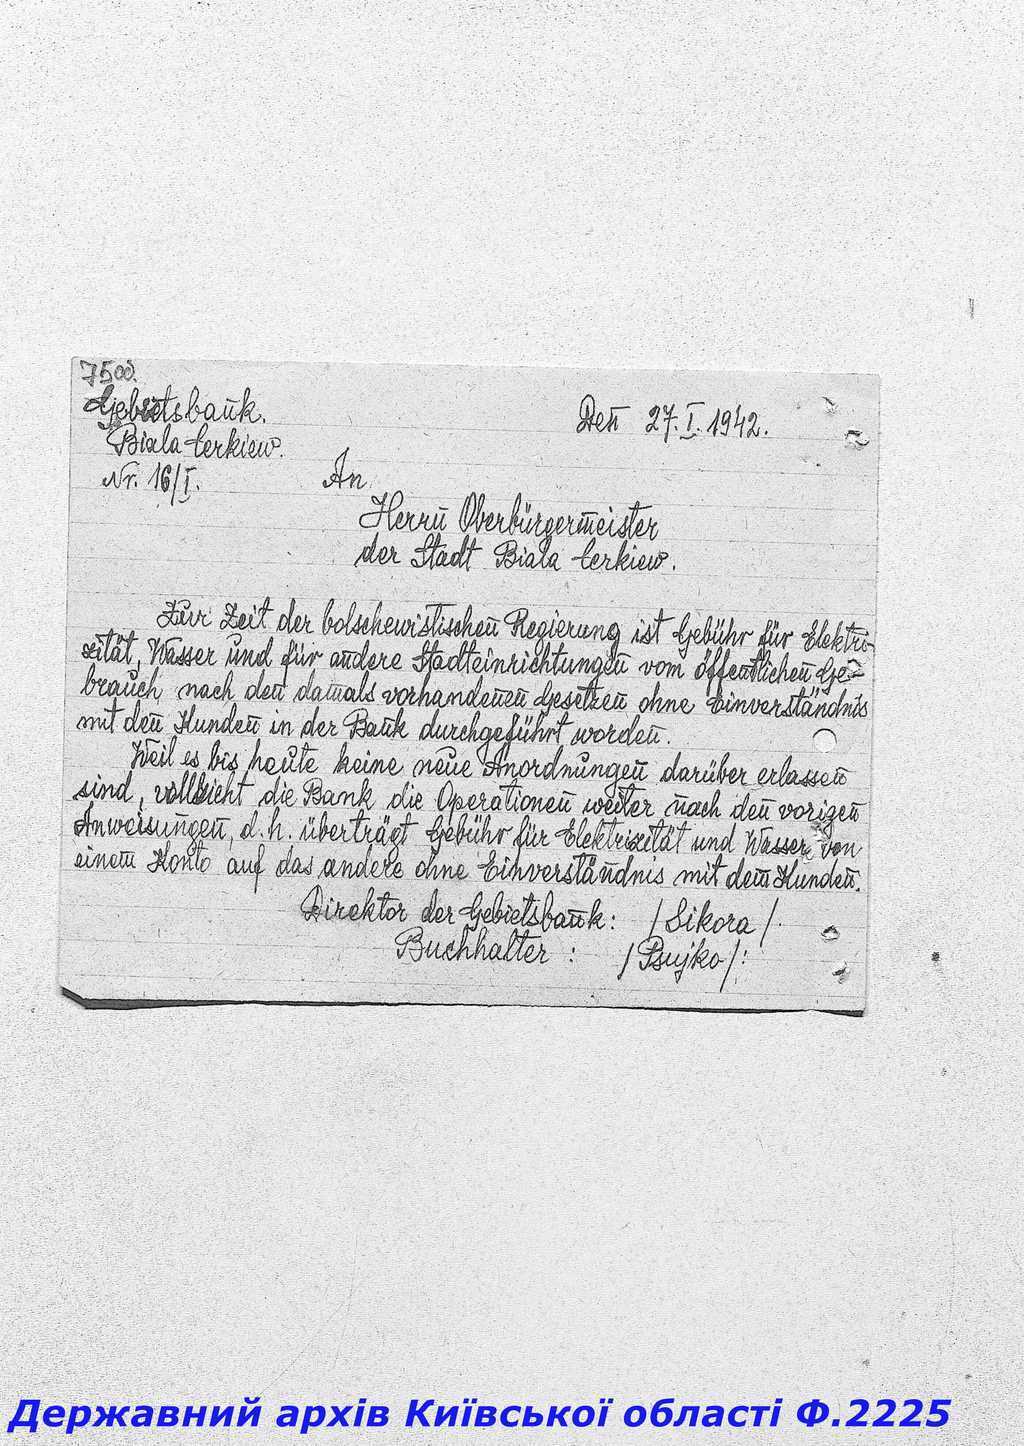 7500.
Gebietsbank.
Den 27.I.1942.
Biala-Cerkiew.
Nr. 16/I.
An
Herrn Oberbürgermeister
der Stadt Biala Cerkiew.
Zur Zeit der bolschewistischen Regierung ist Gebühr für Elektri-
zität, Wasser und für andere Stadteinrichtungen vom öffentlichen Ge-
brauch nach den damals vorhandenen Gesetzen ohne Einverständnis
mit den Kunden in der Bank durchgeführt worden.
Weil es bis heute keine neue Anordnungen darüber erlassen
sind, vollzieht die Bank die Operationen weiter nach den vorigen
Anweisungen, d.h. überträgt Gebühr für Elektrizität und Wasser von
einem Konto auf das andere ohne Einverständnis mit dem Kunden.
Direktor der Gebietsbank: /Sikora/.
Buchhalter : /Psujko/:
Державний архів Київської області Ф.2225